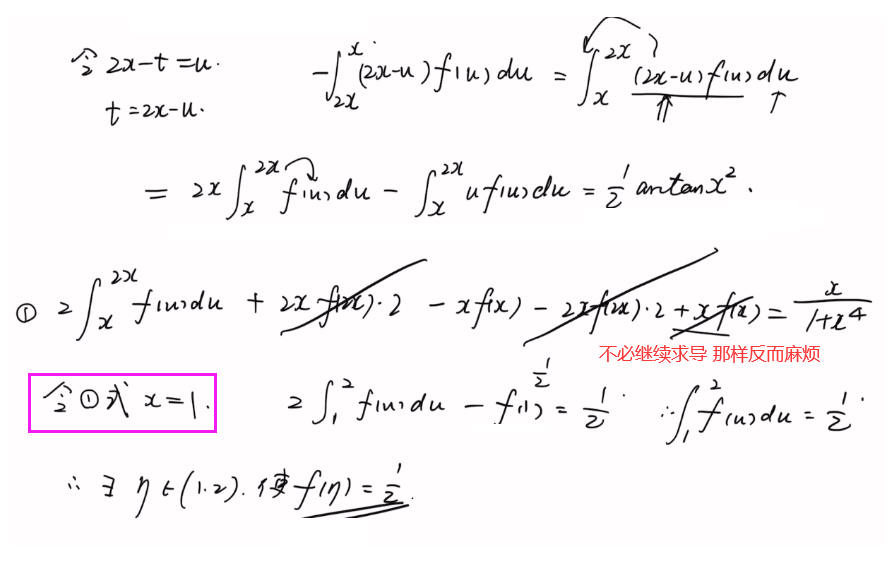 令 2x-t=u. -∫_{2x}^{x} (2x-u)f(u)du = ∫_{x}^{2x} (2x-u)f(u)du
t=2x-u.
= 2x∫_{x}^{2x} f(u)du - ∫_{x}^{2x} uf(u)du = 1/2 arctanx².
① 2∫_{x}^{2x} f(u)du + 2xf(2x)·2 - xf(x) - 2xf(2x)·2 + xf(x) = x/(1+x⁴)
不必继续求导 那样反而麻烦
令①式 x=1. 2∫_{1}^{2} f(u)du - f(1) = 1/2. ∴∫_{1}^{2} f(u)du = 1/2.
1/2
∴ ∃ η∈(1.2). 使 f(η)=1/2.